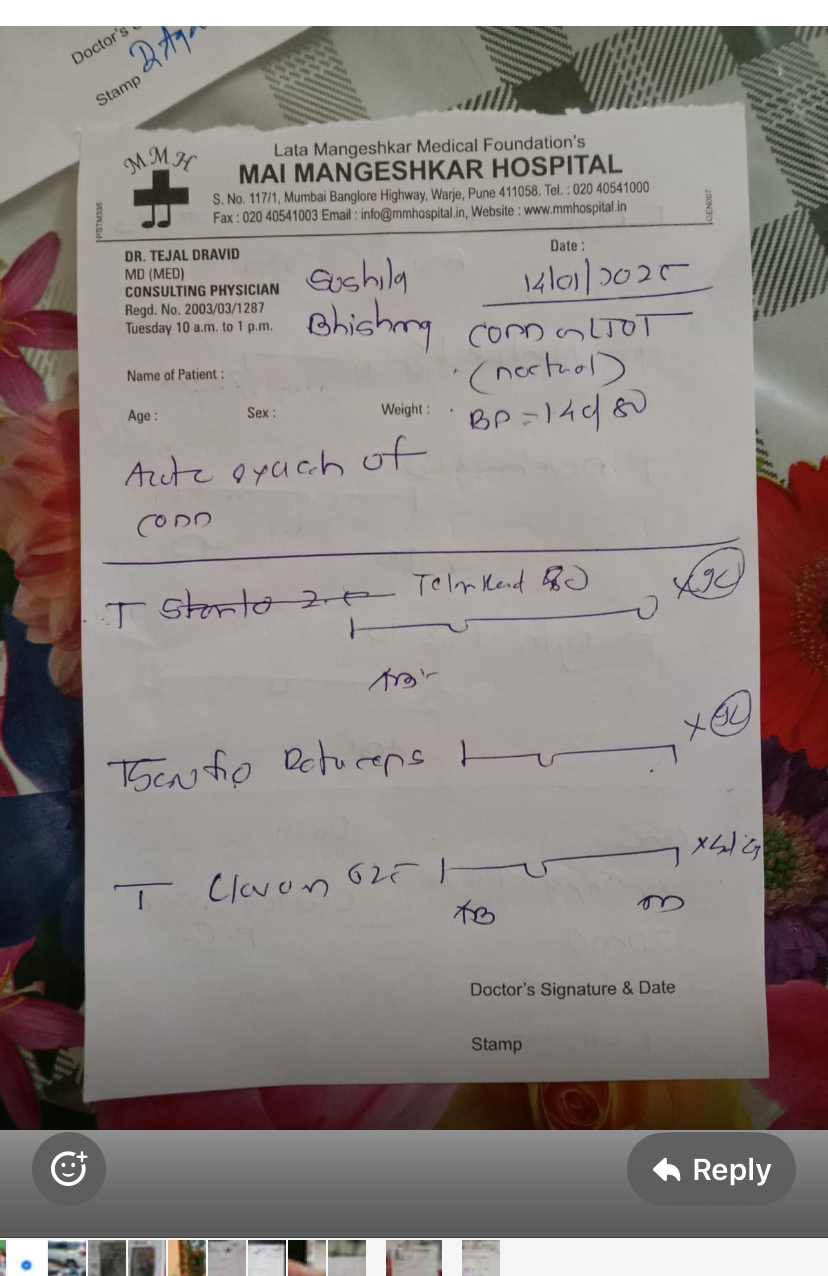 Doctor's
Stamp
MMH
Lata Mangeshkar Medical Foundation's
MAI MANGESHKAR HOSPITAL
S. No. 117/1, Mumbai Banglore Highway, Warje, Pune 411058. Tel. : 020 40541000
Fax : 020 40541003 Email : info@mmhospital.in, Website : www.mmhospital.in
PSTM335
DR. TEJAL DRAVID
MD (MED)
CONSULTING PHYSICIAN
Regd. No. 2003/03/1287
Tuesday 10 a.m. to 1 p.m.
Sushila
Date :
14/01/2025
COPD on LTOT
Name of Patient :
Age :
Sex :
Weight :
BP = 140/80
Acute of
COPD
T Telmikind 80
T
T Clavam 625
Doctor's Signature & Date
Stamp
Reply